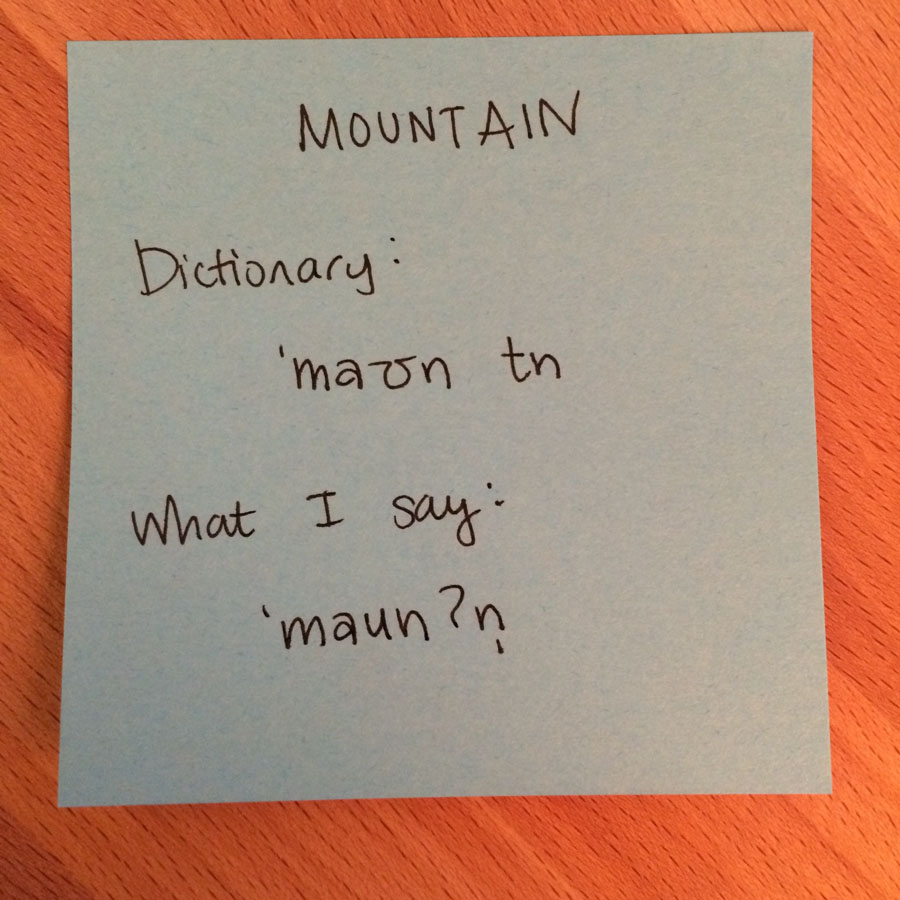 MOUNTAIN
Dictionary:
ˈmaʊn tn
What I say:
ˈmaunʔn̩